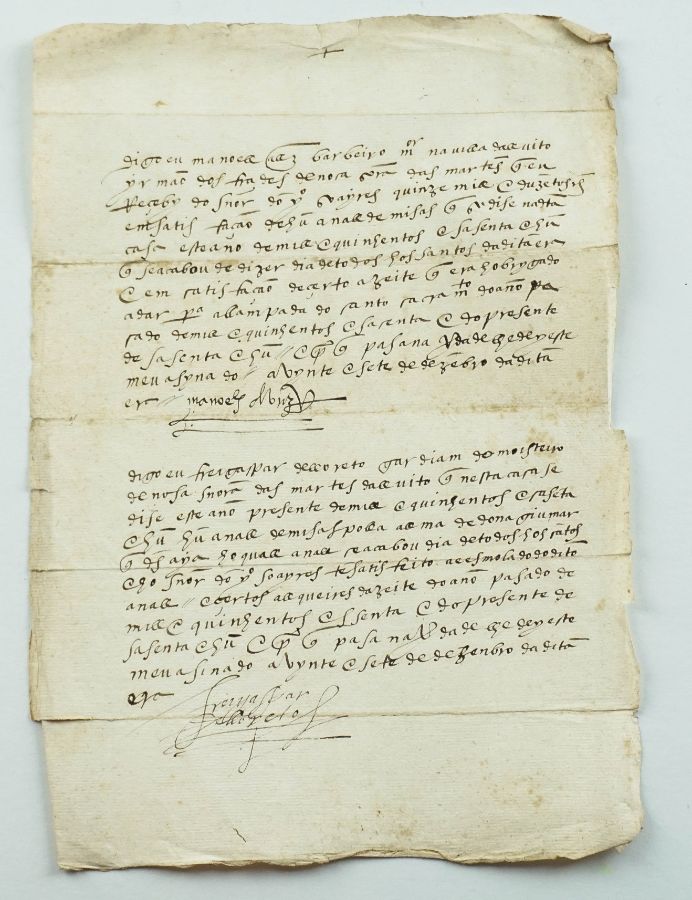 digo eu manoell allz barbeiro mor na villa dallvito
yrmão dos frades de noca sñra das martes q eu
Receby do snor dõ yo soayres quinze mill e duzetos rs
en satisfação de hũ anall de misas q se dise nesta
casa este ano de mill e quinhentos e sasenta e hũ
q se acabou de dizer dia de todos hos santos da dita era
e em satisfação de certo azeite q era hobrygado
a dar pa a llampada do santo sacramto do ano pa
sado de mill e quinhentos e sasenta e do presente
de sasenta e hũ e por q pasa na verdade lhe dey este
meu asynado a vynte e sete de dezẽbro da dita
era manoell allvrz
digo eu frei gaspar do lloreto gardiam do moisteiro
de nosa snora das martes dallvito q nesta casa se
dise este ano presente de mill e quinhentos e saseta
e hũ hũ anall de misas polla allma de dona giumar
q ds aya ho quall anall se acabou dia de todos hos sãtos
e ho snor dõ yo soayres te satisfeito a esmola do dito
anall e certos allqueires dazeite do ano pasado de
mill e quinhentos e sasenta e do presente de
sasenta e hũ e por q pasa na verdade lhe dey este
meu asinado a vynte e sete de dezenbro da dita
era
frei gaspar
do lloreto